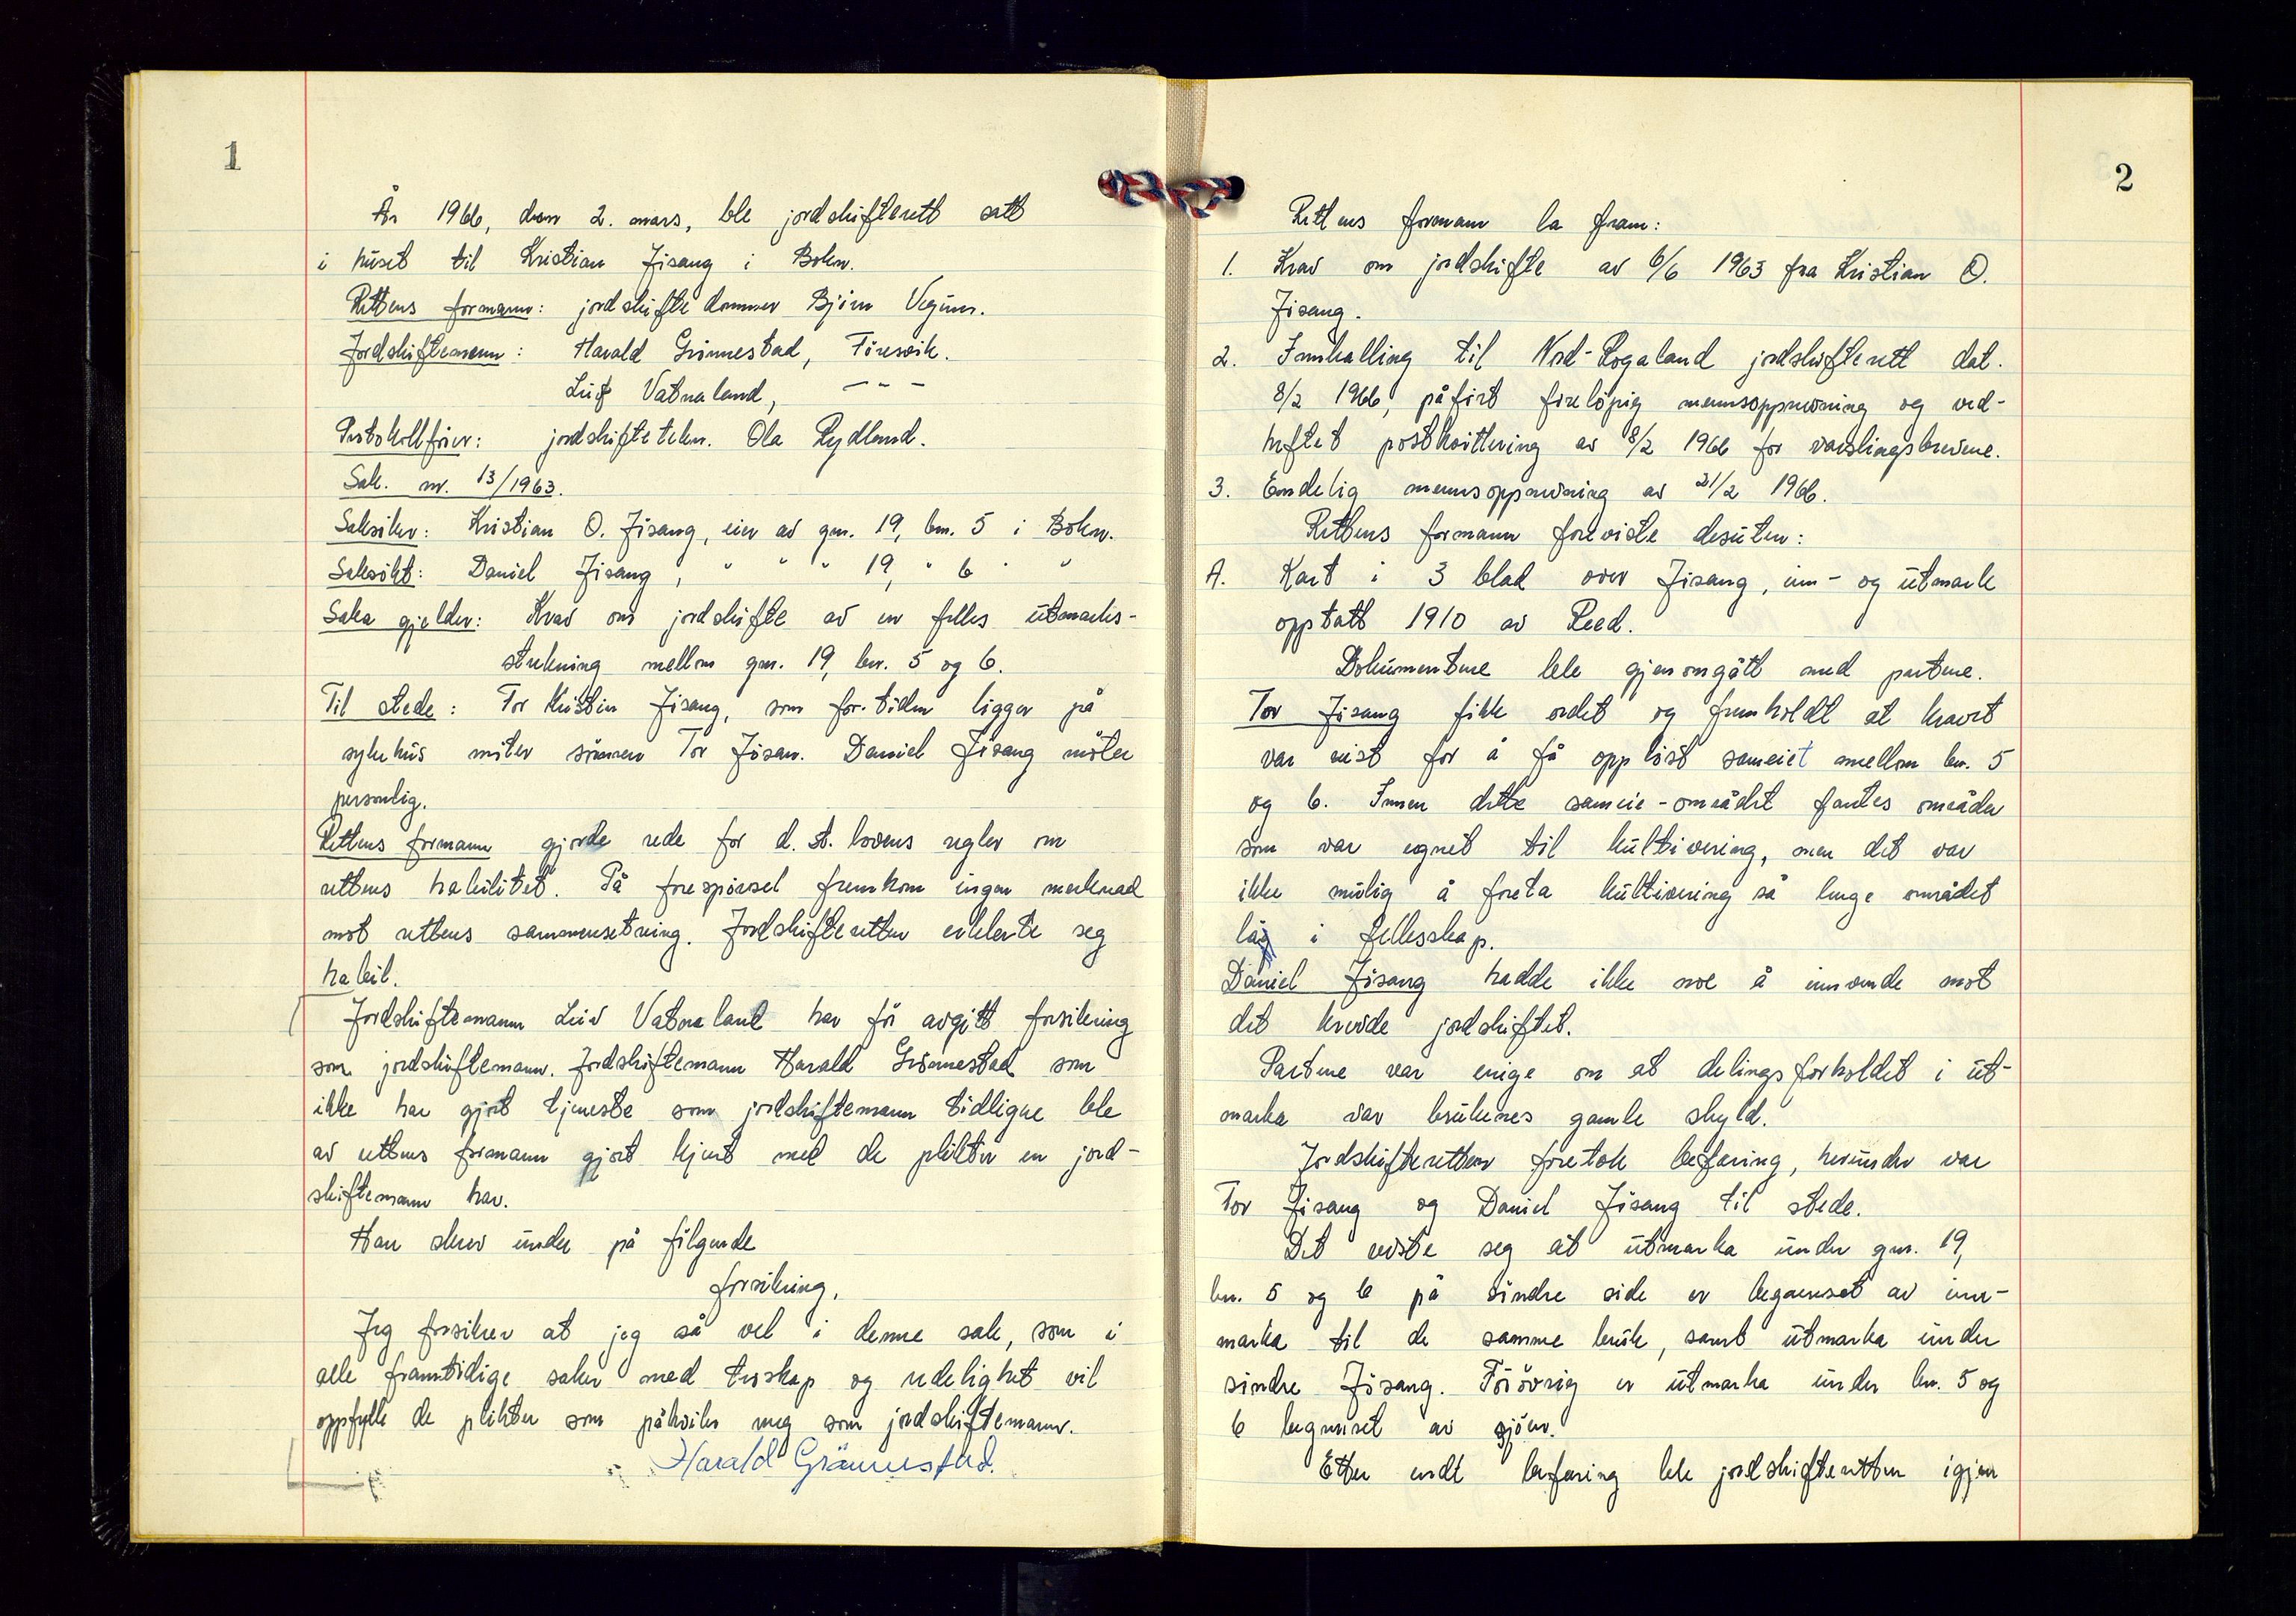 1
År 1966, den 2. mars, ble jordskifterett satt
i huset til Kristian Jøsang i Bokn.
Rettens formann: jordskiftedommer Bjørn Vegum.
Jordskiftemenn: Harald Grønnestad, Føresvik.
Leif Vatnaland, - - -
Protokollfører: jordskiftetekn. Ola Rydland.
Sak. nr. 13/1963.
Saksøker: Kristian O. Jøsang, eier av gnr. 19, bnr. 5 i Bokn.
Saksøkt: Daniel Jøsang, " " " 19, " 6 " "
Saka gjelder: Krav om jordskifte av en felles utmarks-
strekning mellom gnr. 19, bnr. 5 og 6.
Til stede: For Kristian Jøsang, som for tiden ligger på
sykehus møter sønnen Tor Jøsan. Daniel Jøsang møter
personlig.
Rettens formann gjorde rede for d. st. lovens regler om
rettens habilitet. På forespørsel fremkom ingen merknad
mot rettens sammensetning. Jordskifteretten erklærte seg
habil.
Jordskiftemann Leiv Vatnaland har før avgitt forsikring
som jordskiftemann. Jordskiftemann Harald Grønnestad som
ikke har gjort tjeneste som jordskiftemann tidligere ble
av rettens formann gjort kjent med de plikter en jord-
skiftemann har.
Han skrev under på følgende
forsikring.
Jeg forsikrer at jeg så vel i denne sak, som i
alle framtidige saker med troskap og redelighet vil
oppfylle de plikter som påhviler meg som jordskiftemann.
Harald Grønnestad.
2
Rettens formann la fram:
1. Krav om jordskifte av 6/6 1963 fra Kristian O.
Jøsang.
2. Innkalling til Nord-Rogaland jordskifterett dat.
8/2 1966, påført foreløpig mannsoppnevning og ved-
heftet postkvittering av 8/2 1966 for varslingsbrevene.
3. Endelig mannsoppnevning av 21/2 1966.
Rettens formann foreviste desuten:
A. Kart i 3 blad over Jøsang, inn- og utmark
opptatt 1910 av Reed.
Dokumentene ble gjenomgått med partene.
Tor Jøsang fikk ordet og fremholdt at kravet
var reist for å få oppløst sameiet mellom bnr. 5
og 6. Innen dette sameie-området fantes områder
som var egnet til kultivering, men det var
ikke mulig å foreta kultivering så lenge området
låg i fellesskap.
Daniel Jøsang hadde ikke noe å innvende mot
det krevde jordskiftet.
Partene var enige om at delingsforholdet i ut-
marka var brukenes gamle skyld.
Jordskifteretten foretok befaring, herunder var
Tor Jøsang og Daniel Jøsang til stede.
Det viste seg at utmarka under gnr. 19,
bnr. 5 og 6 på søndre side er begrenset av inn-
marka til de samme bruk, samt utmarka under
søndre Jøsang. Forøvrig er utmarka under bnr. 5 og
6 begrenset av sjøen.
Etter endt befaring ble jordskifteretten igjen